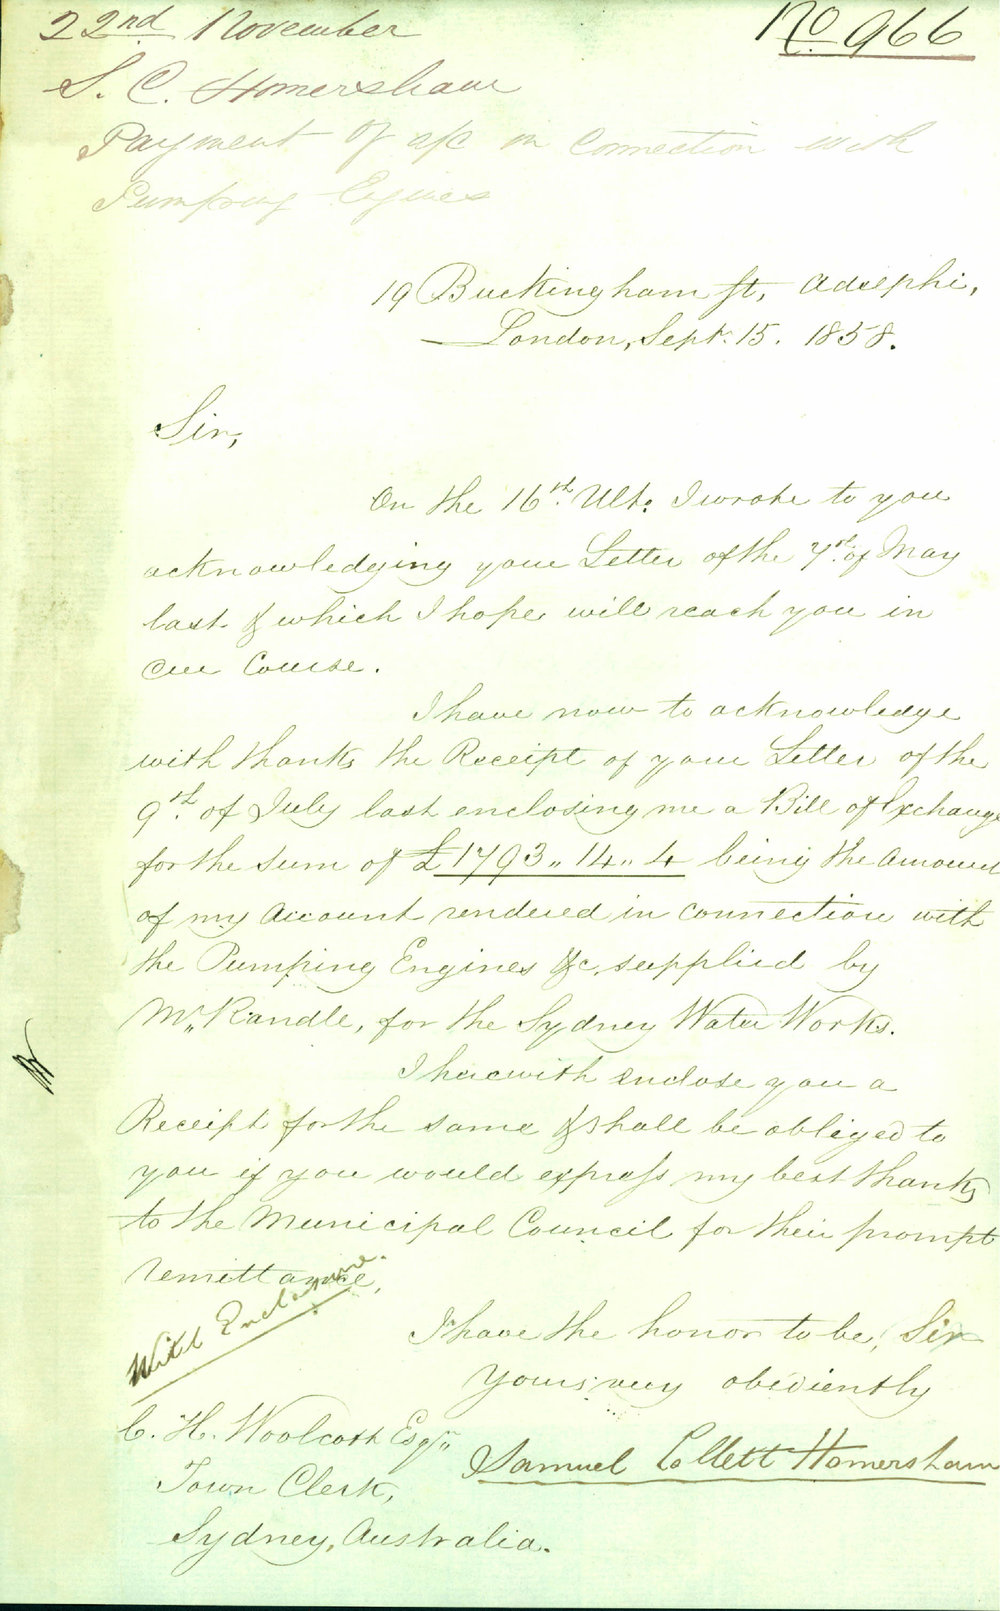 22nd November
No 966
S. C. Homersham
Payment of a/c in connection with
Pumping Engines
19 Buckingham St, Adelphi,
London, Sept. 15. 1858.
Sir,
On the 16th Ulto I wrote to you
acknowledging your Letter of the 7th of May
last & which I hope will reach you in
due Course.
I have now to acknowledge
with thanks the Receipt of your Letter of the
9th of July last enclosing me a Bill of Exchange
for the sum of £1793,, 14,, 4 being the Amount
of my Account rendered in connection with
the Pumping Engines &c, supplied by
Mr, Randle, for the Sydney Water Works.
I herewith enclose you a
Receipt for the same & shall be obliged to
you if you would express my best thanks
to the Municipal Council for their prompt
remittance,
With Enclosure.
I have the honor to be, Sir
Yours very obediently
Samuel Collett Homersham
C. H. Woolcott Esqr,,
Town Clerk,
Sydney, Australia.